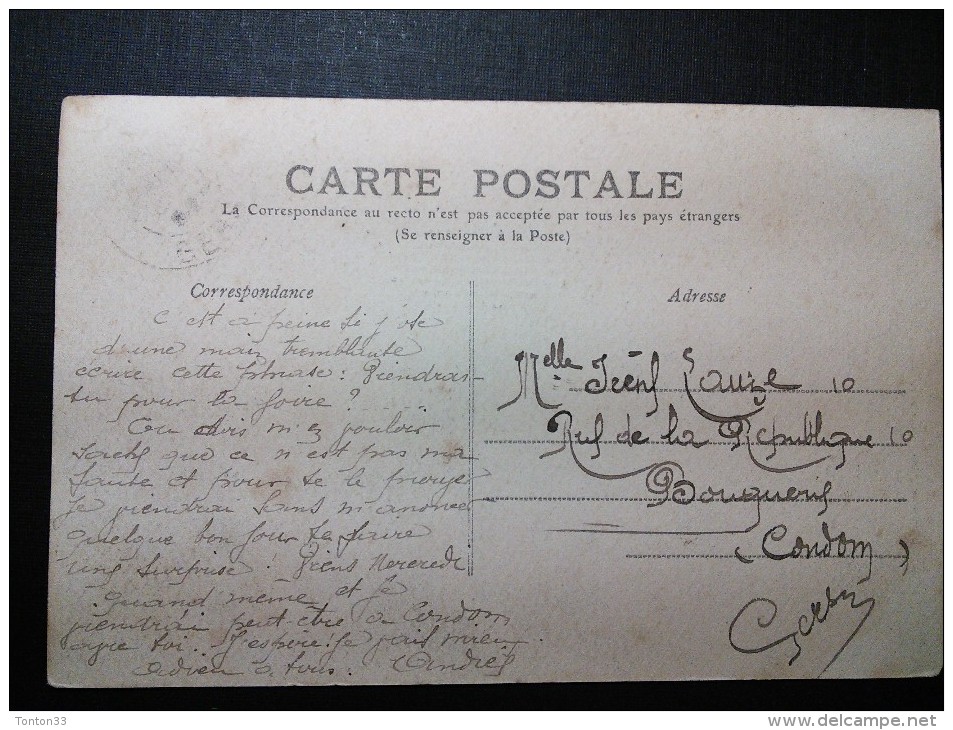 CARTE POSTALE
La Correspondance au recto n'est pas acceptée par tous les pays étrangers
(Se renseigner à la Poste)
Correspondance
C est à peine si j'ose
d'une main tremblante
écrire cette phrase: Viendras-
tu pour la foire?
Tu dois m'en vouloir
Sache que ce n'est pas ma
faute et pour te le prouver
Je viendrai sans m'anoncer
quelque bon jour te faire
une surprise. Viens Mercredi
quand même et je
viendrai peut-être à Condom
avec toi. J'espère! Je vais mieux.
Adieu à tous. Andrée
Adresse
Melle Irène Lauze 10
Rue de la République 10
Condom
Gers
Tonton33
www.delcampe.net